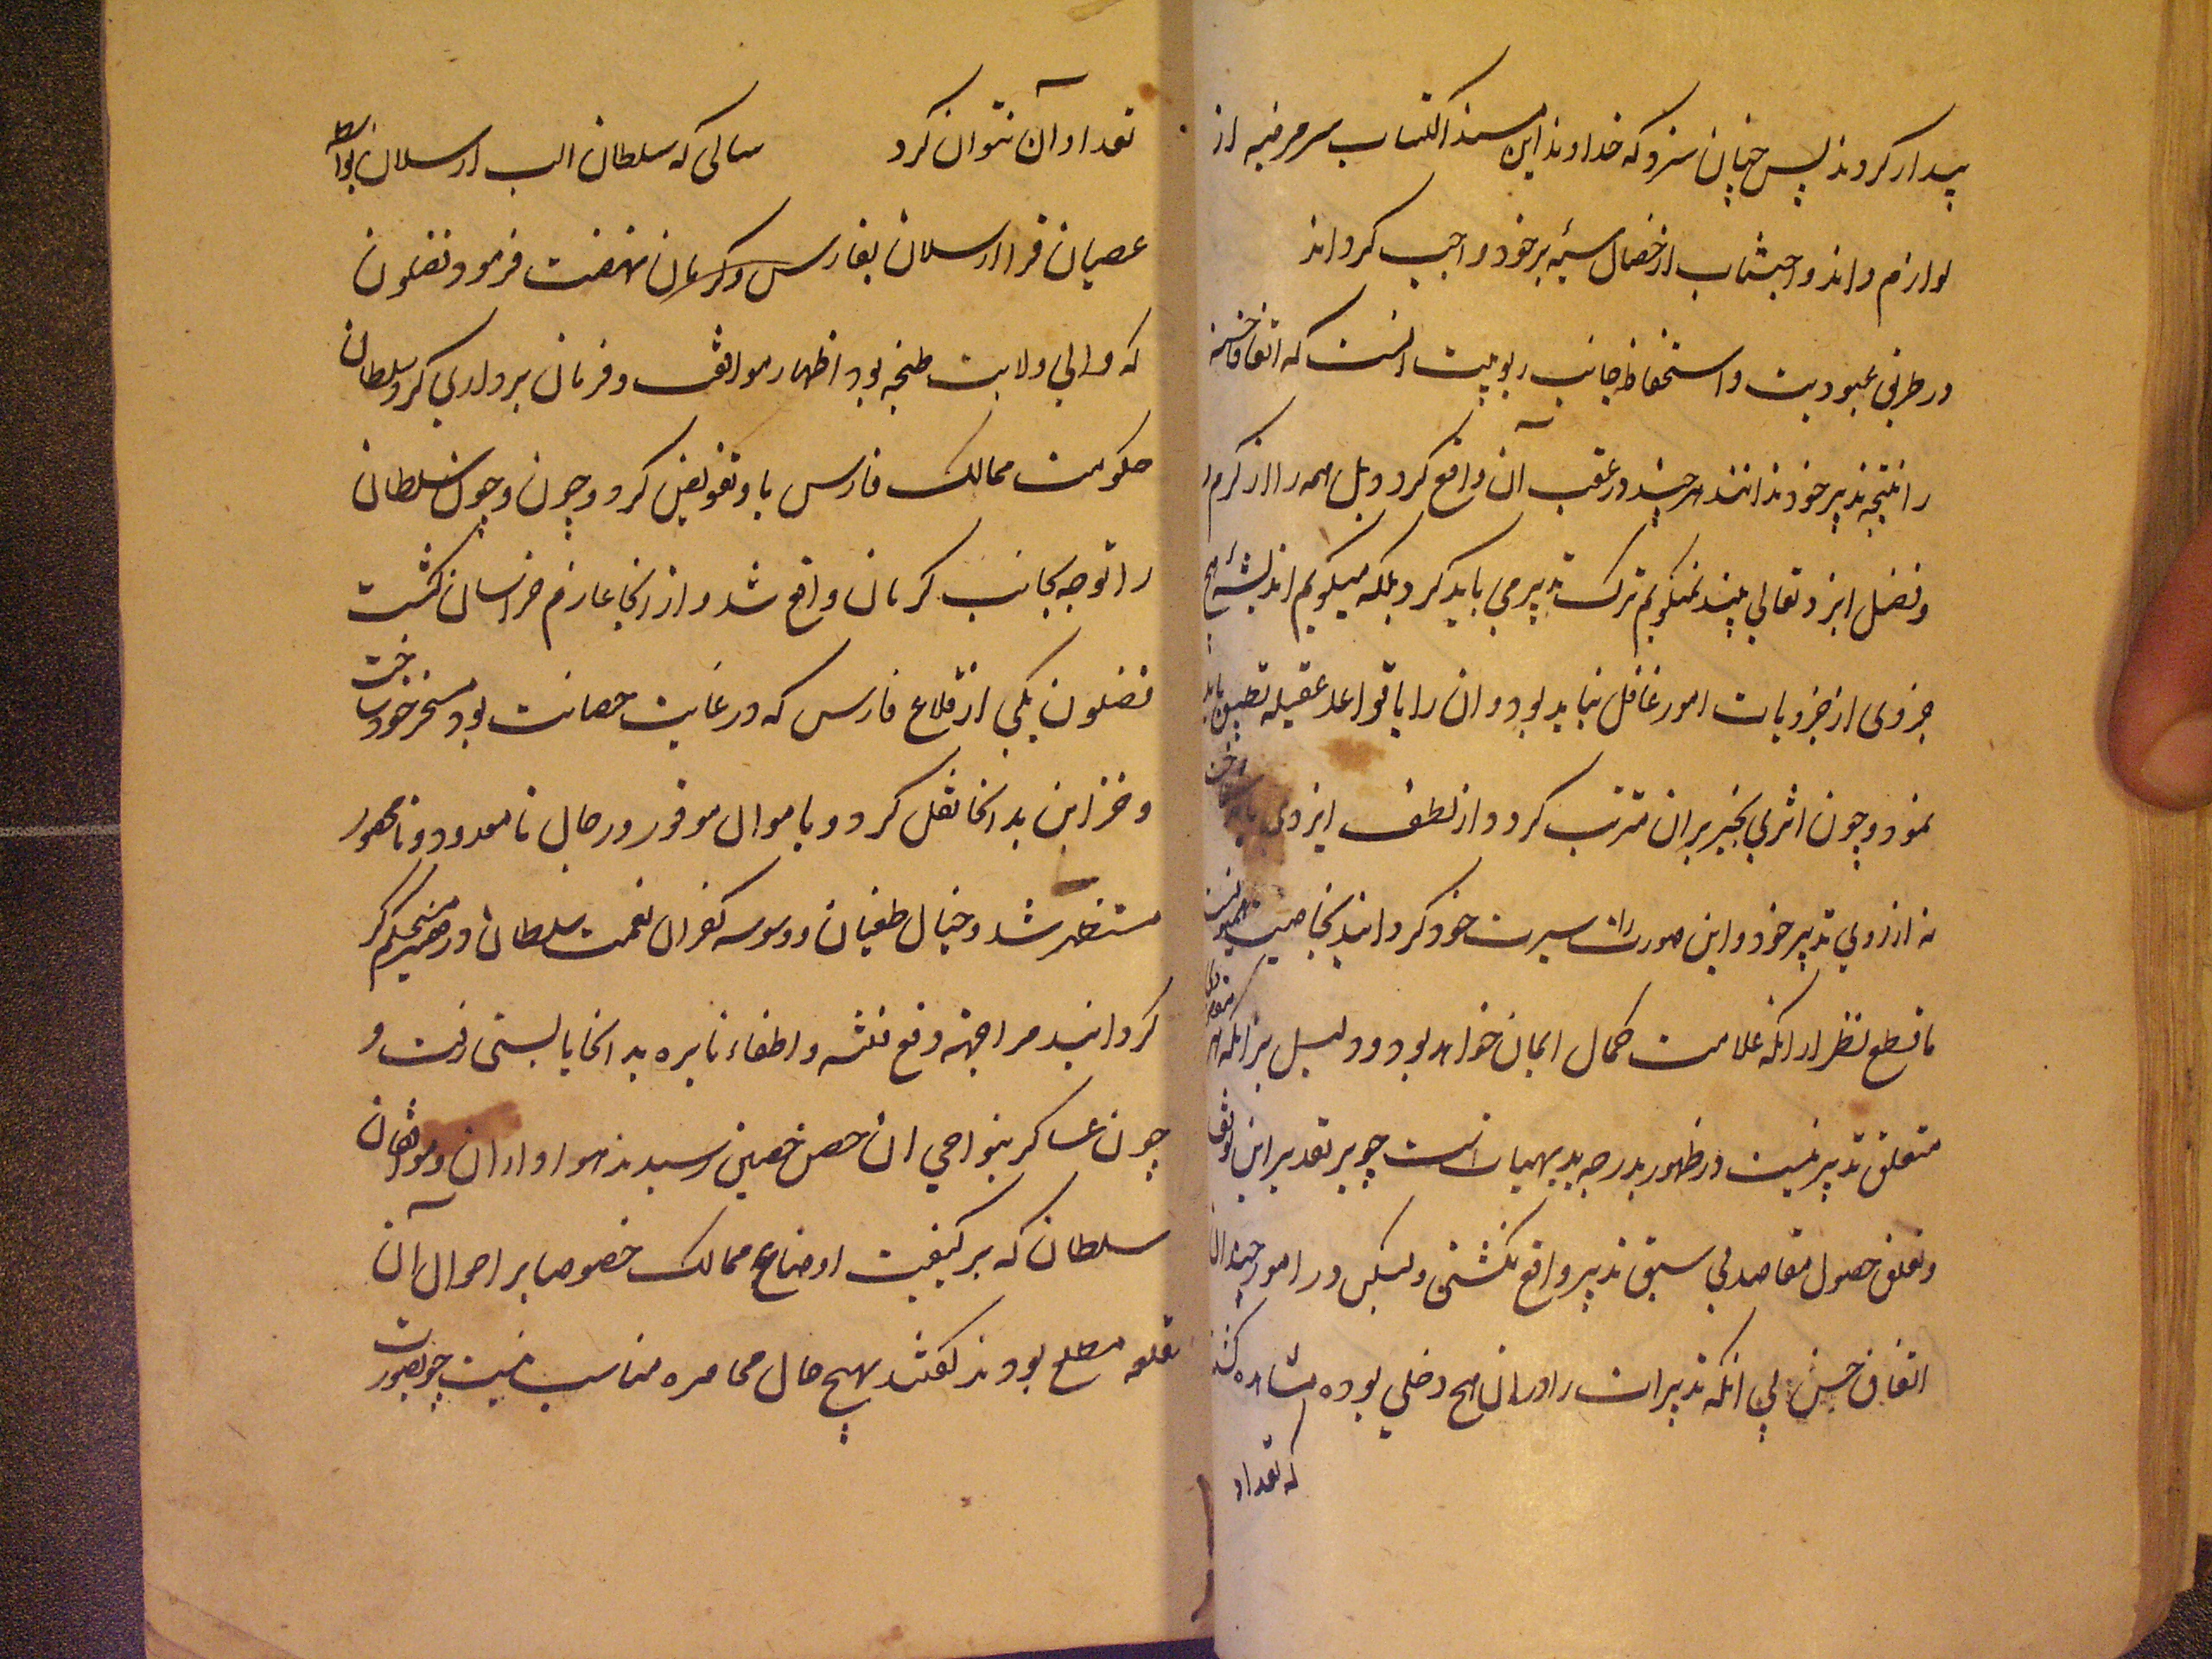 پیدار کردند پس چنان سزد که خداوند این مسند اکتساب سر مرضیه از
لوازم داند و اجتناب از خصال سیئه بر خود واجب کرداند
در طریق عبودیت و استحفاظ جانب ربوبیت آنست که اتفاقات حسنه
را نتیجه تدبیر خود ندانند هر چند در عقب آن واقع کردد بل همه را از کرم
و فضل ایزد تعالی بیند نمیکویم ترک تدبیر می باید کرد بلکه میکویم اندیشهٔ هیچ
جزوی از جزویات امور غافل نباید بود و ان را با قواعد عقلیه تطبیق باید
نمود و چون اثری بخیر بران مترتب کردد از لطف ایزدی باید شناخت
نه از روی تدبیر خود و این صورت را سیرت خود کردانید بخاصیت
ما قطع نظر از انکه علامت کمال ایمان خواهد بود و دلیل بر انکه
متعلق تدبیر نیست در ظهور بدرجه بدیهیات است چو بر تقدیر این توقف
و تعلق حصول مقاصد بی سبق تدبیر واقع نکشتی ولیکن در امور چندان
اتفاق حسن بی انکه تدبیرات را در ان هیچ دخلی بوده مشاهده کنند
که تعداد
تعداد آن نتوان کرد سالی که سلطان الب ارسلان بواسطه
عصیان قرا ارسلان بفارس و کرمان نهضت فرمود فضلون
که والی ولایت طنجه بود اظهار موافقت و فرمان برداری کرد سلطان
حکومت ممالک فارس باو تفویض کرد و چون وجون سلطان
را توجه بجانب کرمان واقع شد و از انجا عازم خراسان کشت
فضلون یکی از قلاع فارس که در غایت حصانت بود مسخر خود ساخت
و خزاین بدانجا نقل کرد و باموال موفور و رجال نامعدود و نامحصور
مستظهر شد و خیال طغیان و وسوسه کفران نعمت سلطان در ضمیر مستحکم کر
کردانید مرا جهته دفع فتنه و اطفاء نایره بدانجا بایستی رفت و
چون عساکر بنواحی ان حصن حصین رسیدند هواداران و موافقان
سلطان که بر کیفیت اوضاع ممالک خصوصا بر احوال آن
قلعه مطلع بودند کفتند بهیچ حال محاصره مناسب نیست چو بصورت